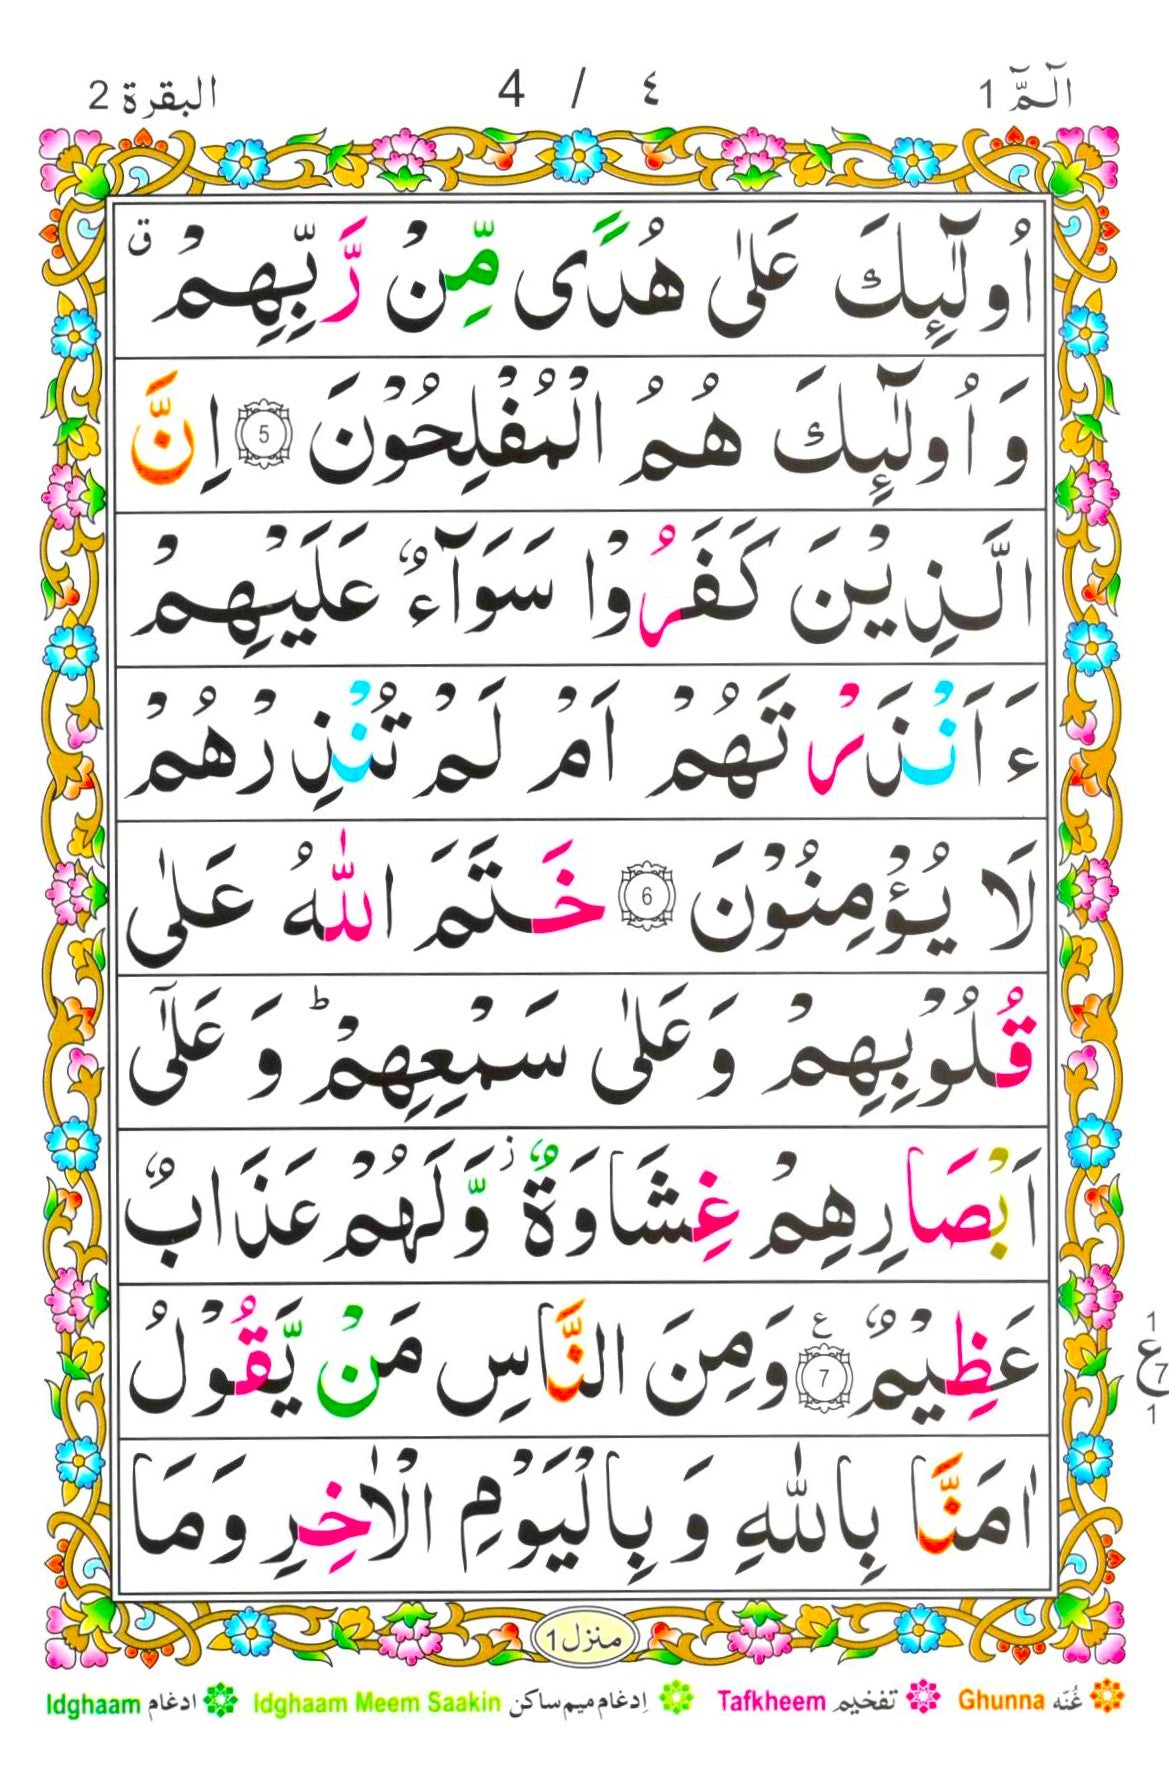 الٓـمّٓ 1 ٤ / 4 البقرة 2
اُولٰٓئِكَ عَلٰی هُدًی مِّنْ رَّبِّهِمْ ق
وَ اُولٰٓئِكَ هُمُ الْمُفْلِحُوْنَ 5 اِنَّ
الَّذِیْنَ كَفَرُوْا سَوَآءٌ عَلَیْهِمْ
ءَاَنْذَرْتَهُمْ اَمْ لَمْ تُنْذِرْهُمْ
لَا یُؤْمِنُوْنَ 6 خَتَمَ اللّٰهُ عَلٰی
قُلُوْبِهِمْ وَ عَلٰی سَمْعِهِمْ ؕ وَ عَلٰۤی
اَبْصَارِهِمْ غِشَاوَةٌ ز وَّ لَهُمْ عَذَابٌ
عَظِیْمٌ ع 7 وَ مِنَ النَّاسِ مَنْ یَّقُوْلُ
اٰمَنَّا بِاللّٰهِ وَ بِالْیَوْمِ الْاٰخِرِ وَ مَا
1
ع 7
1
منزل 1
غُنّه Ghunna تفخیم Tafkheem اِدغام میم ساکن Idghaam Meem Saakin ادغام Idghaam